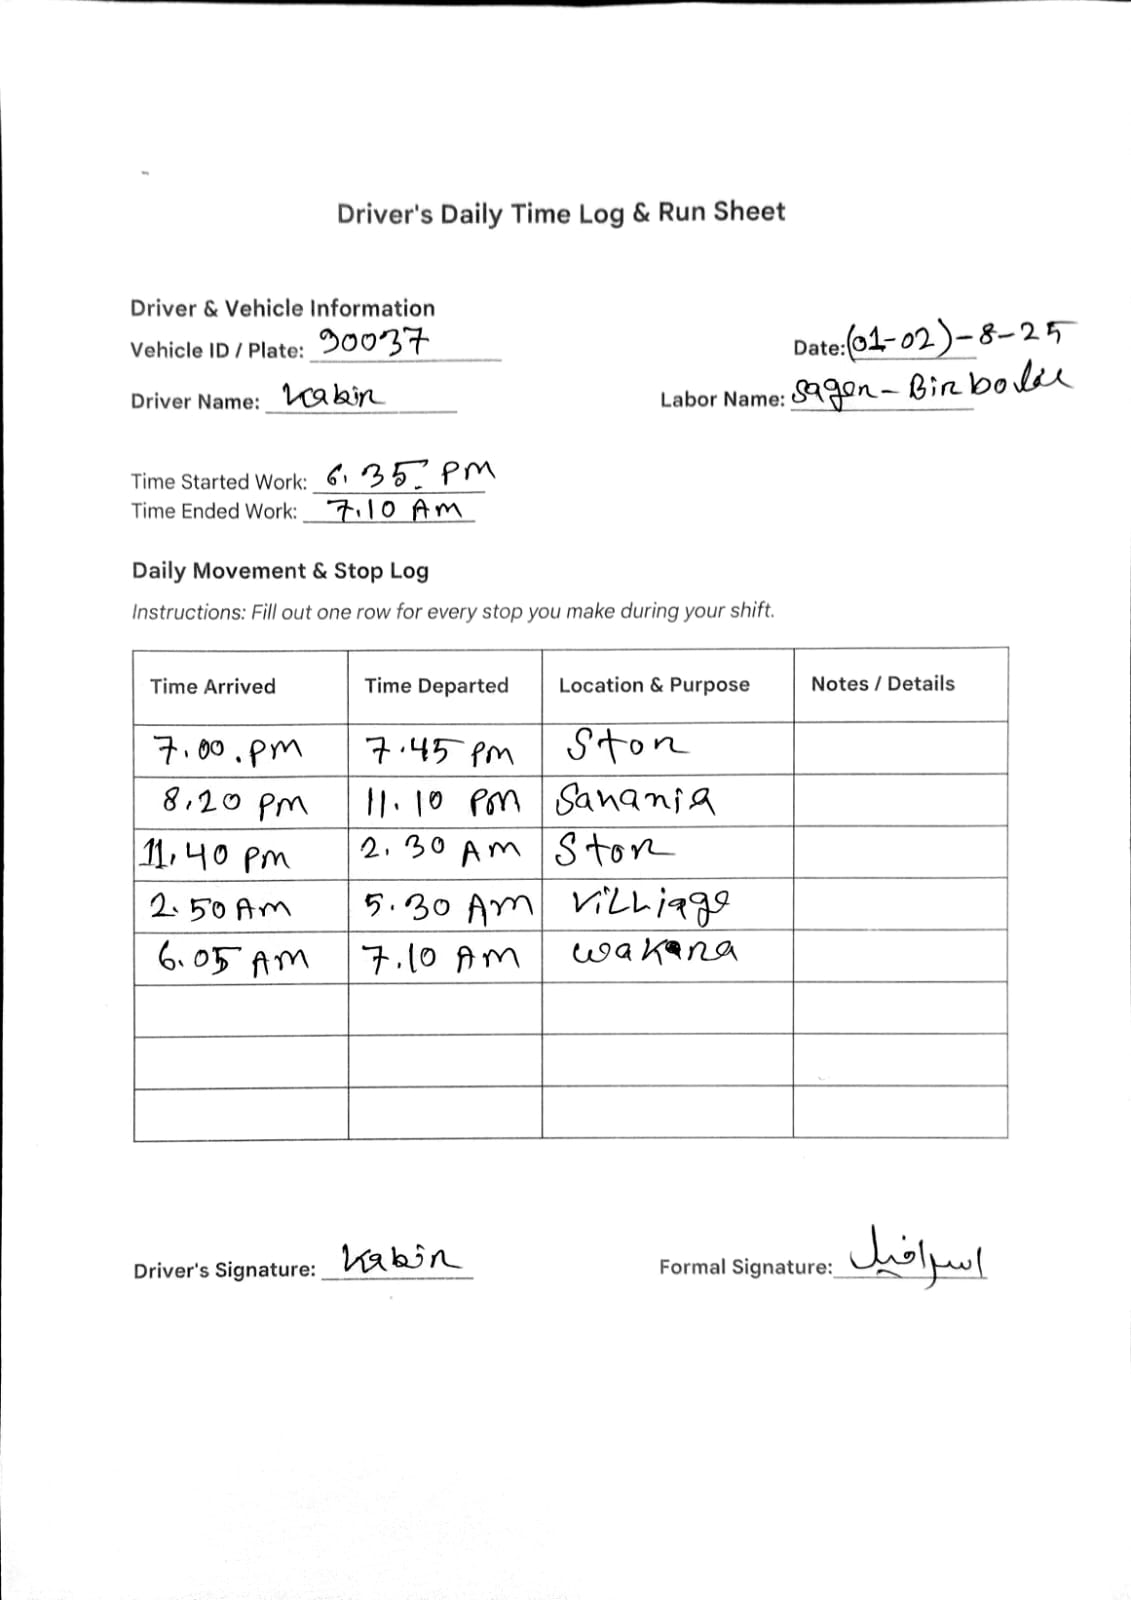 Driver's Daily Time Log & Run Sheet
Driver & Vehicle Information
Vehicle ID / Plate: 90037
Date: (01-02)-8-25
Driver Name: Kabir
Labor Name: Sagor - Bir
Time Started Work: 6.35 PM
Time Ended Work: 7.10 AM
Daily Movement & Stop Log
Instructions: Fill out one row for every stop you make during your shift.
Time Arrived Time Departed Location & Purpose Notes / Details
7.00.pm 7.45 pm Stor
8.20 pm 11.10 pm Sanania
11.40 pm 2.30 AM Stor
2.50 AM 5.30 AM Villiage
6.05 AM 7.10 AM wakara
Driver's Signature: Kabir
Formal Signature: اسرافيل